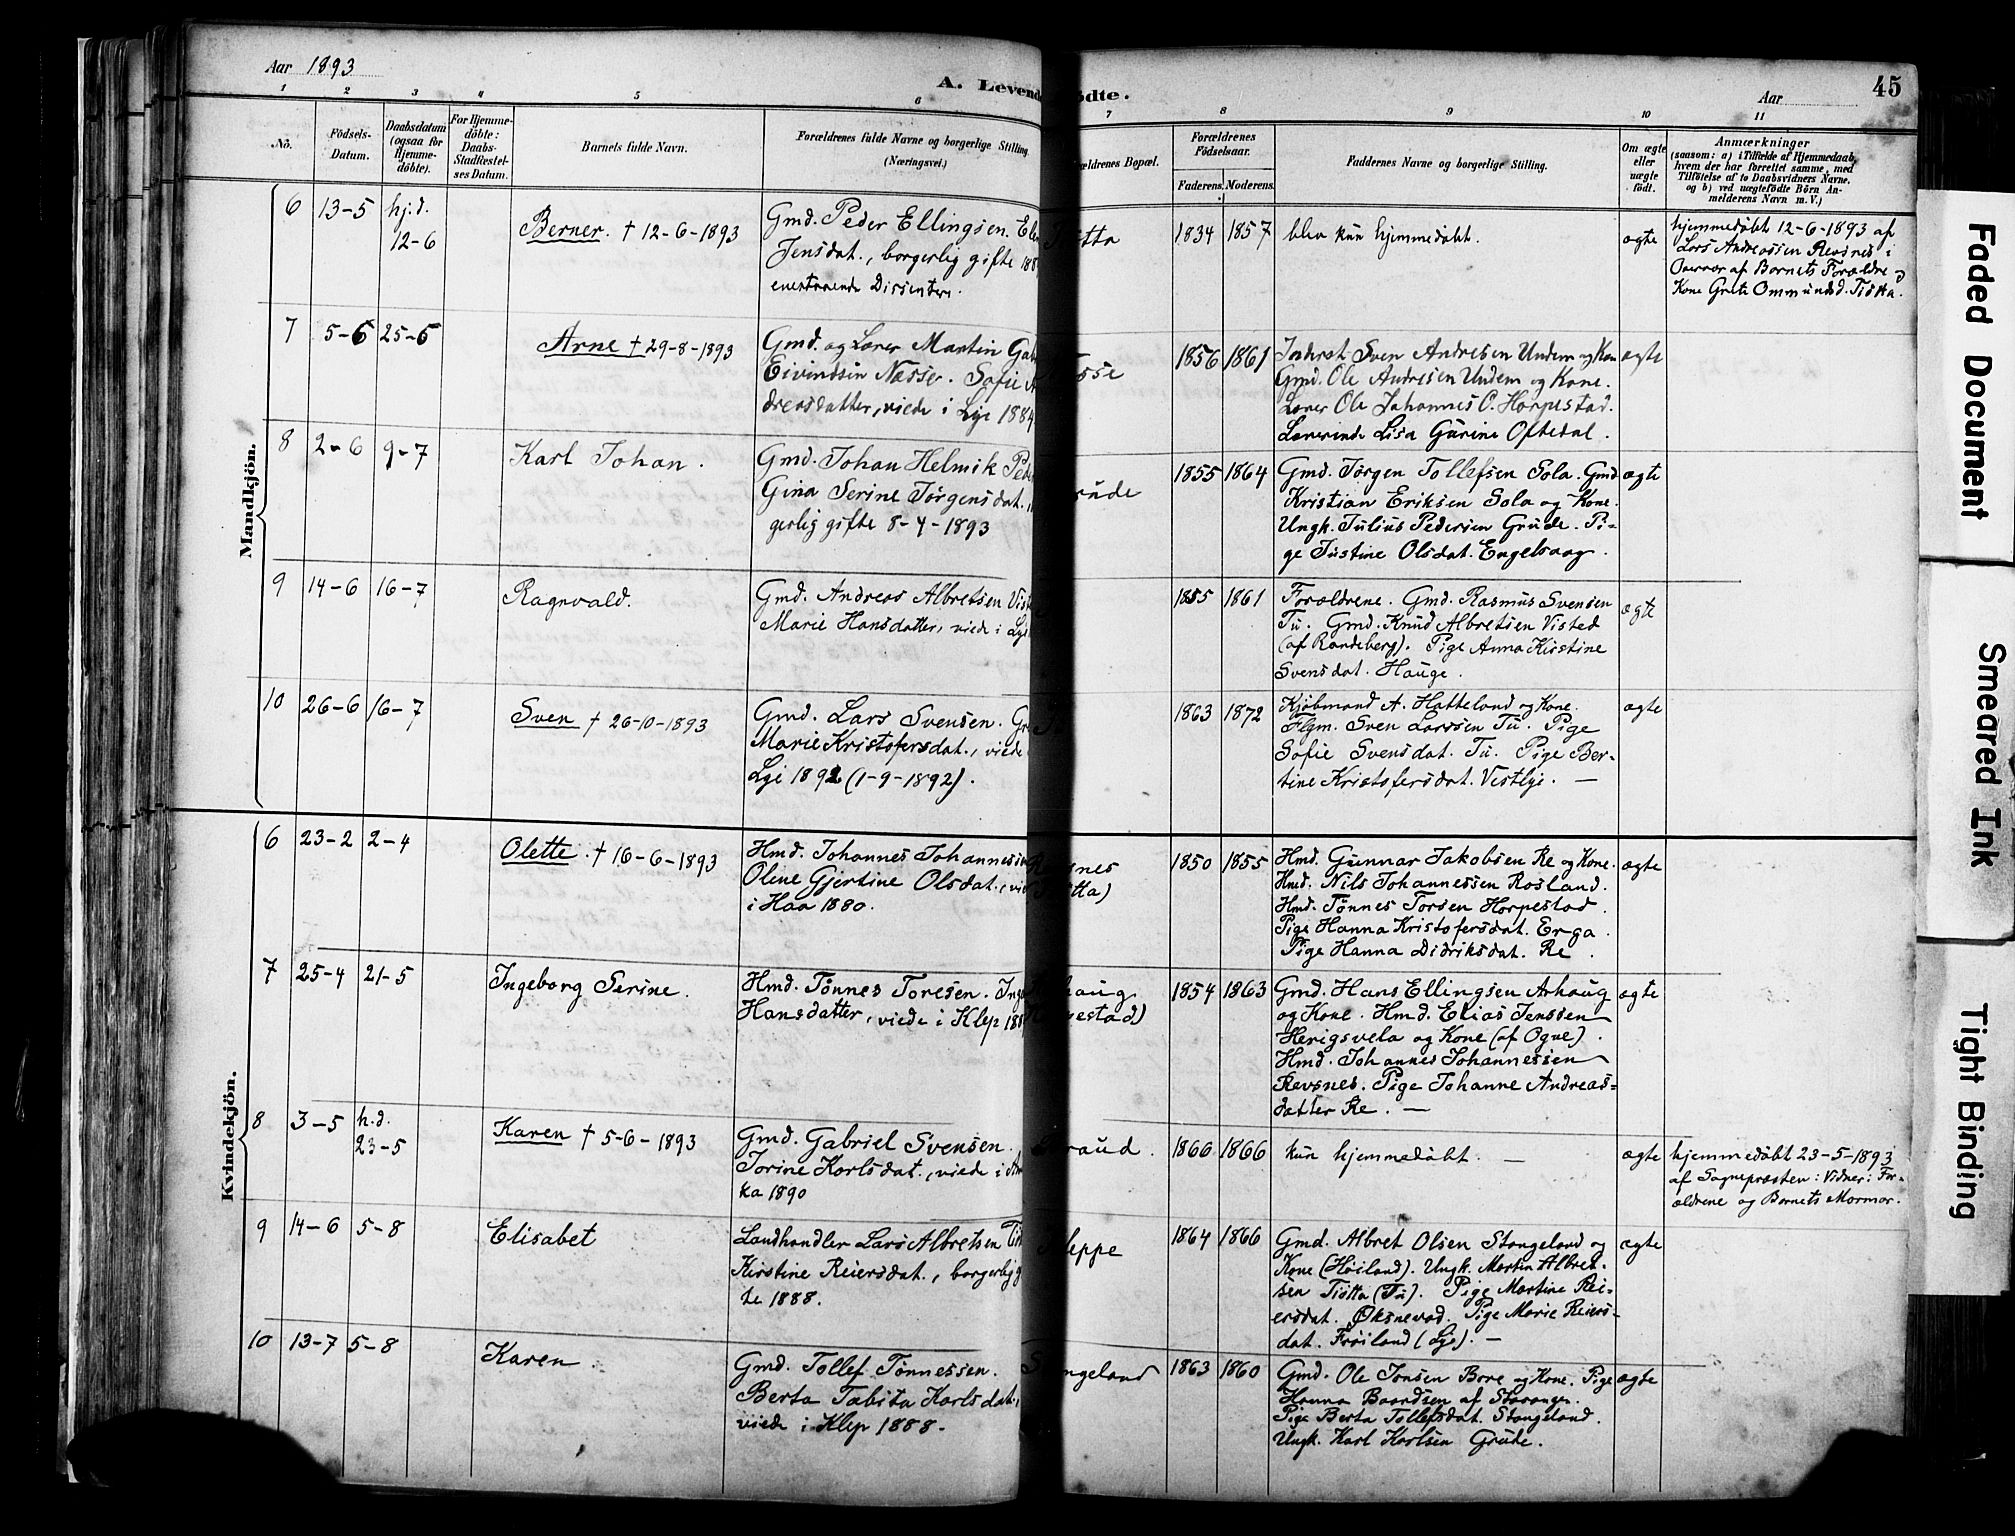 Aar 1893
A. Levende
ødte.
Aar
45
1 2 3 4 5 6 7 8 9 10 11
No.
Födsels-
Datum.
Daabsdatum
(ogsaa for
Hjemme-
döbte).
For Hjemme-
döbte:
Daabs-
Stadfæstel-
ses Datum.
Barnets fulde Navn.
Forældrenes fulde Navne og borgerlige Stilling
(Næringsvei.)
ældrenes Bopæl.
Forældrenes
Födselsaar.
Faderens. Moderens.
Faddernes Navne og borgerlige Stilling.
Om ægte
eller
uægte
födt.
Anmærkninger
(saasom: a) i Tilfælde af Hjemmedaab,
hvem der har forrettet samme, med
Tilföielse af to Daabsvidners Navne,
og b) ved uægtefödte Börn An-
melderens Navn m. V.)
Mandkjön.
6 13-5 hj.d.
12-6
Berner. † 12-6-1893
Gmd. Peder Ellingsen. Elen
Jensdat., borgerlig gifte 188
enestaaende Dissentere.
1834 1857
blev kun hjemmedøbt.
ægte
hjemmedøbt 12-6-1893 af
Lars Andreassen Revsnes i
Overvær af Barnets Forældre og
Kone Grete Ommundsd. Tiøtta.
7 5-6 25-6
Arne † 29-8-1893
Gmd. og Lærer Martin Gab
Eivindsen Næsse. Sofie A
dreasdatter, viede i Lye 1884
1856 1861
Inderst Sven Andresen Undem og Kone
Gmd. Ole Andresen Undem og Kone.
Lærer Ole Johannes O. Horpestad.
Lærerinde Lisa Gurine Oftedal.
ægte
8 2-6 9-7
Karl Johan.
Gmd. Johan Helmik Peder
Gina Serine Jørgensdat.
gerlig gifte 8-4-1893
rude
1855 1864
Gmd. Jørgen Tollefsen Sola. Gmd
Kristian Eriksen Sola og Kone.
Ungk. Julius Pedersen Grude. Pi-
ge Justine Olsdat. Engelsvaag.
ægte
9 14-6 16-7
Ragnvald.
Gmd. Andreas Albretsen Vist
Marie Hansdatter, viede i Lye
1855 1861
Forældrene. Gmd. Rasmus Svensen
Tu. Gmd. Knud Albretsen Visted
(af Randeberg). Pige Anna Kirstine
Svensdat. Hauge.
ægte
10 26-6 16-7
Sven † 26-10-1893
Gmd. Lars Svensen. Gr
Marie Kristofersdat., viede
Lye 1892 (1-9-1892).
1863 1872
Kjøbmand A. Hatteland og Kone.
Flgm. Sven Larssen Tu. Pige
Sofie Svensdat. Tu. Pige Ber-
tine Kristofersdat. Vestlye. —
ægte
Kvindekjön.
6 23-2 2-4
Olette. † 16-6-1893
Hmd. Johannes Johannesen
Olene Gjertine Olsdat., vied
i Haa 1880.
snes
tta)
1850 1855
Hmd. Gunnar Jakobsen Re og Kone.
Hmd. Nils Johannessen Rosland.
Hmd. Tønnes Torsen Horpestad.
Pige Hanna Kristofersdat. Erga.
Pige Hanna Didriksdat. Re.
ægte
7 25-4 21-5
Ingeborg Serine.
Hmd. Tønnes Toresen. Inge
Hansdatter, viede i Klep 188
haug
pestad)
1854 1863
Gmd. Hans Ellingsen Arhaug
og Kone. Hmd. Elias Jenssen
Herigsvela og Kone (af Ogne).
Hmd. Johannes Johannessen
Revsnes. Pige Johanne Andreas-
datter Re. —
ægte
8 3-5 h.d.
23-5
Karen † 5-6-1893
Gmd. Gabriel Svensen.
Torine Karlsdat., viede i Am
ka 1890
raud.
1866 1866
kun hjemmedøbt. —
ægte
hjemmedøbt 23-5-1893
af Sognepræsten: Vidner: For-
ældrene og Barnets Mormor.
9 14-6 5-8
Elisabet
Landhandler Lars Albretsen Tiø
Kirstine Reiersdat., borgerlig g
te 1888.
leppe
1864 1866
Gmd. Albret Olsen Stangeland og
Kone (Høiland). Ungk. Martin Albret-
sen Tiøtta (Tu). Pige Martine Rei-
ersdat. Øksnevad. Pige Marie Reiers-
dat. Frøiland (Lye). —
ægte
10 13-7 5-8
Karen
Gmd. Tollef Tønnessen.
Berta Tabita Karlsdat.,
viede i Klep 1888.
ngeland
1863 1860
Gmd. Ole Jonsen Bore og Kone. Pige
Hanna Baardsen af Stavanger.
Pige Berta Tollefsdat. Stangeland.
Ungk. Karl Karlsen Grude.
ægte
Faded Document
Smeared Ink
Tight Binding